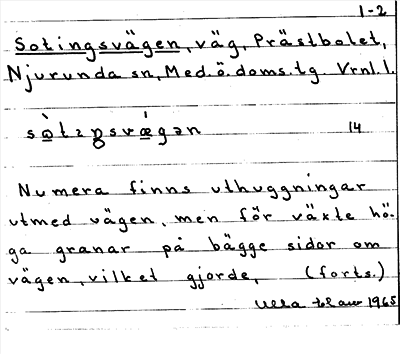 1-2
Sotingsvägen, väg, Prästbolet,
Njurunda sn, Med. ö. doms. tg. Vrnl. l.
14
Numera finns uthuggningar
utmed vägen, men för växte hö-
ga granar på bägge sidor om
vägen, vilket gjorde, (forts.)
Ulla 1965